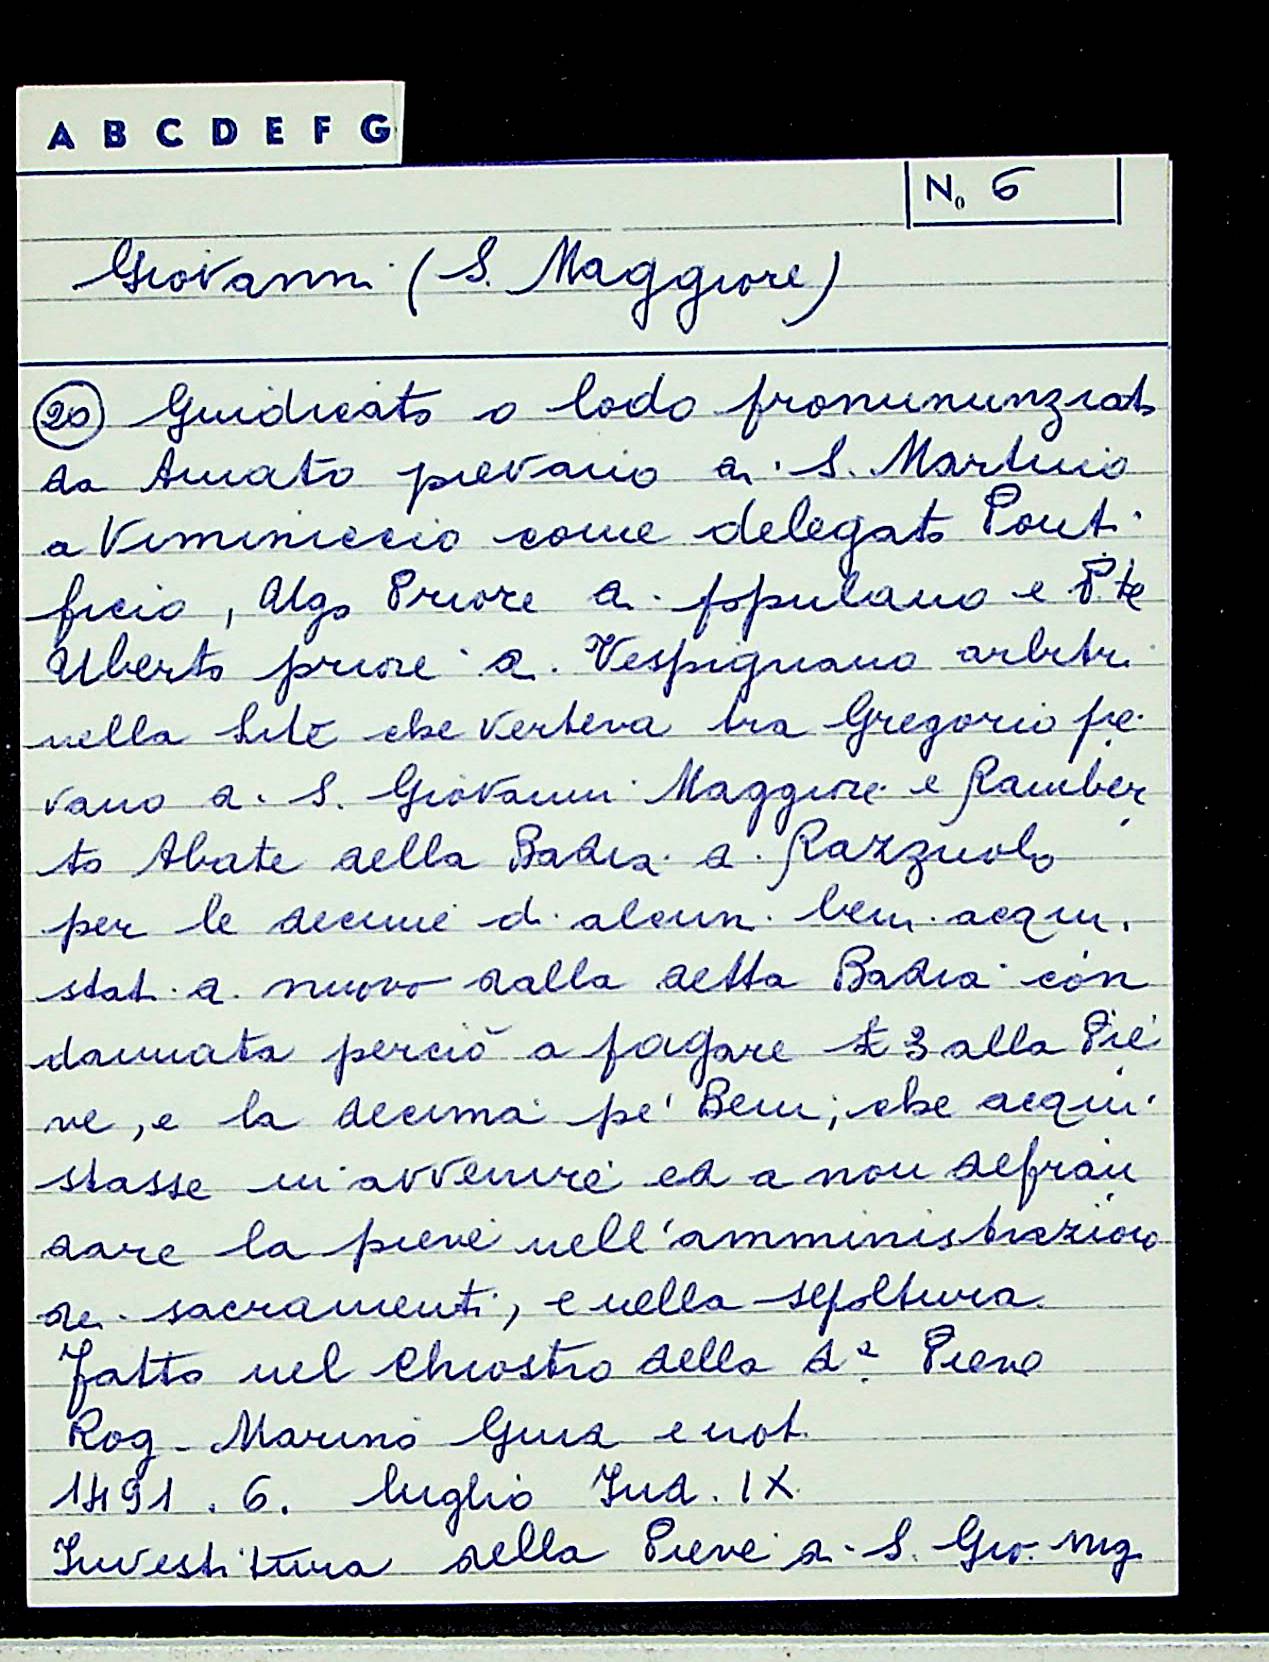 A B C D E F G
No 6
Giovanni (S. Maggiore)
20 Giudicato o lodo pronununziato
da Amato pievano di S. Martino
a Viminiccio come delegato Ponti
ficio, Algo Priore di popolano e P.te
Uberto priore di Vespignano arbitri
nella lite che verteva tra Gregorio pie
vano di S. Giovanni Maggiore e Ramber
to Abate della Badia di Razzuolo
per le decime di alcuni beni acqui
stati di nuovo dalla detta Badia con
dannata perciò a pagare £ 3 alla Pie
ve, e la decima pe' Beni, che acqui
stasse in avvenire ed a non defrau
dare la pieve nell'amministrazione
dei sacramenti, e nella sepoltura.
Fatto nel Chiostro della da. Pieve
Rog. Marino Giud e not.
1491. 6. luglio Ind. IX
Investitura della Pieve di S. Gio. Mg.